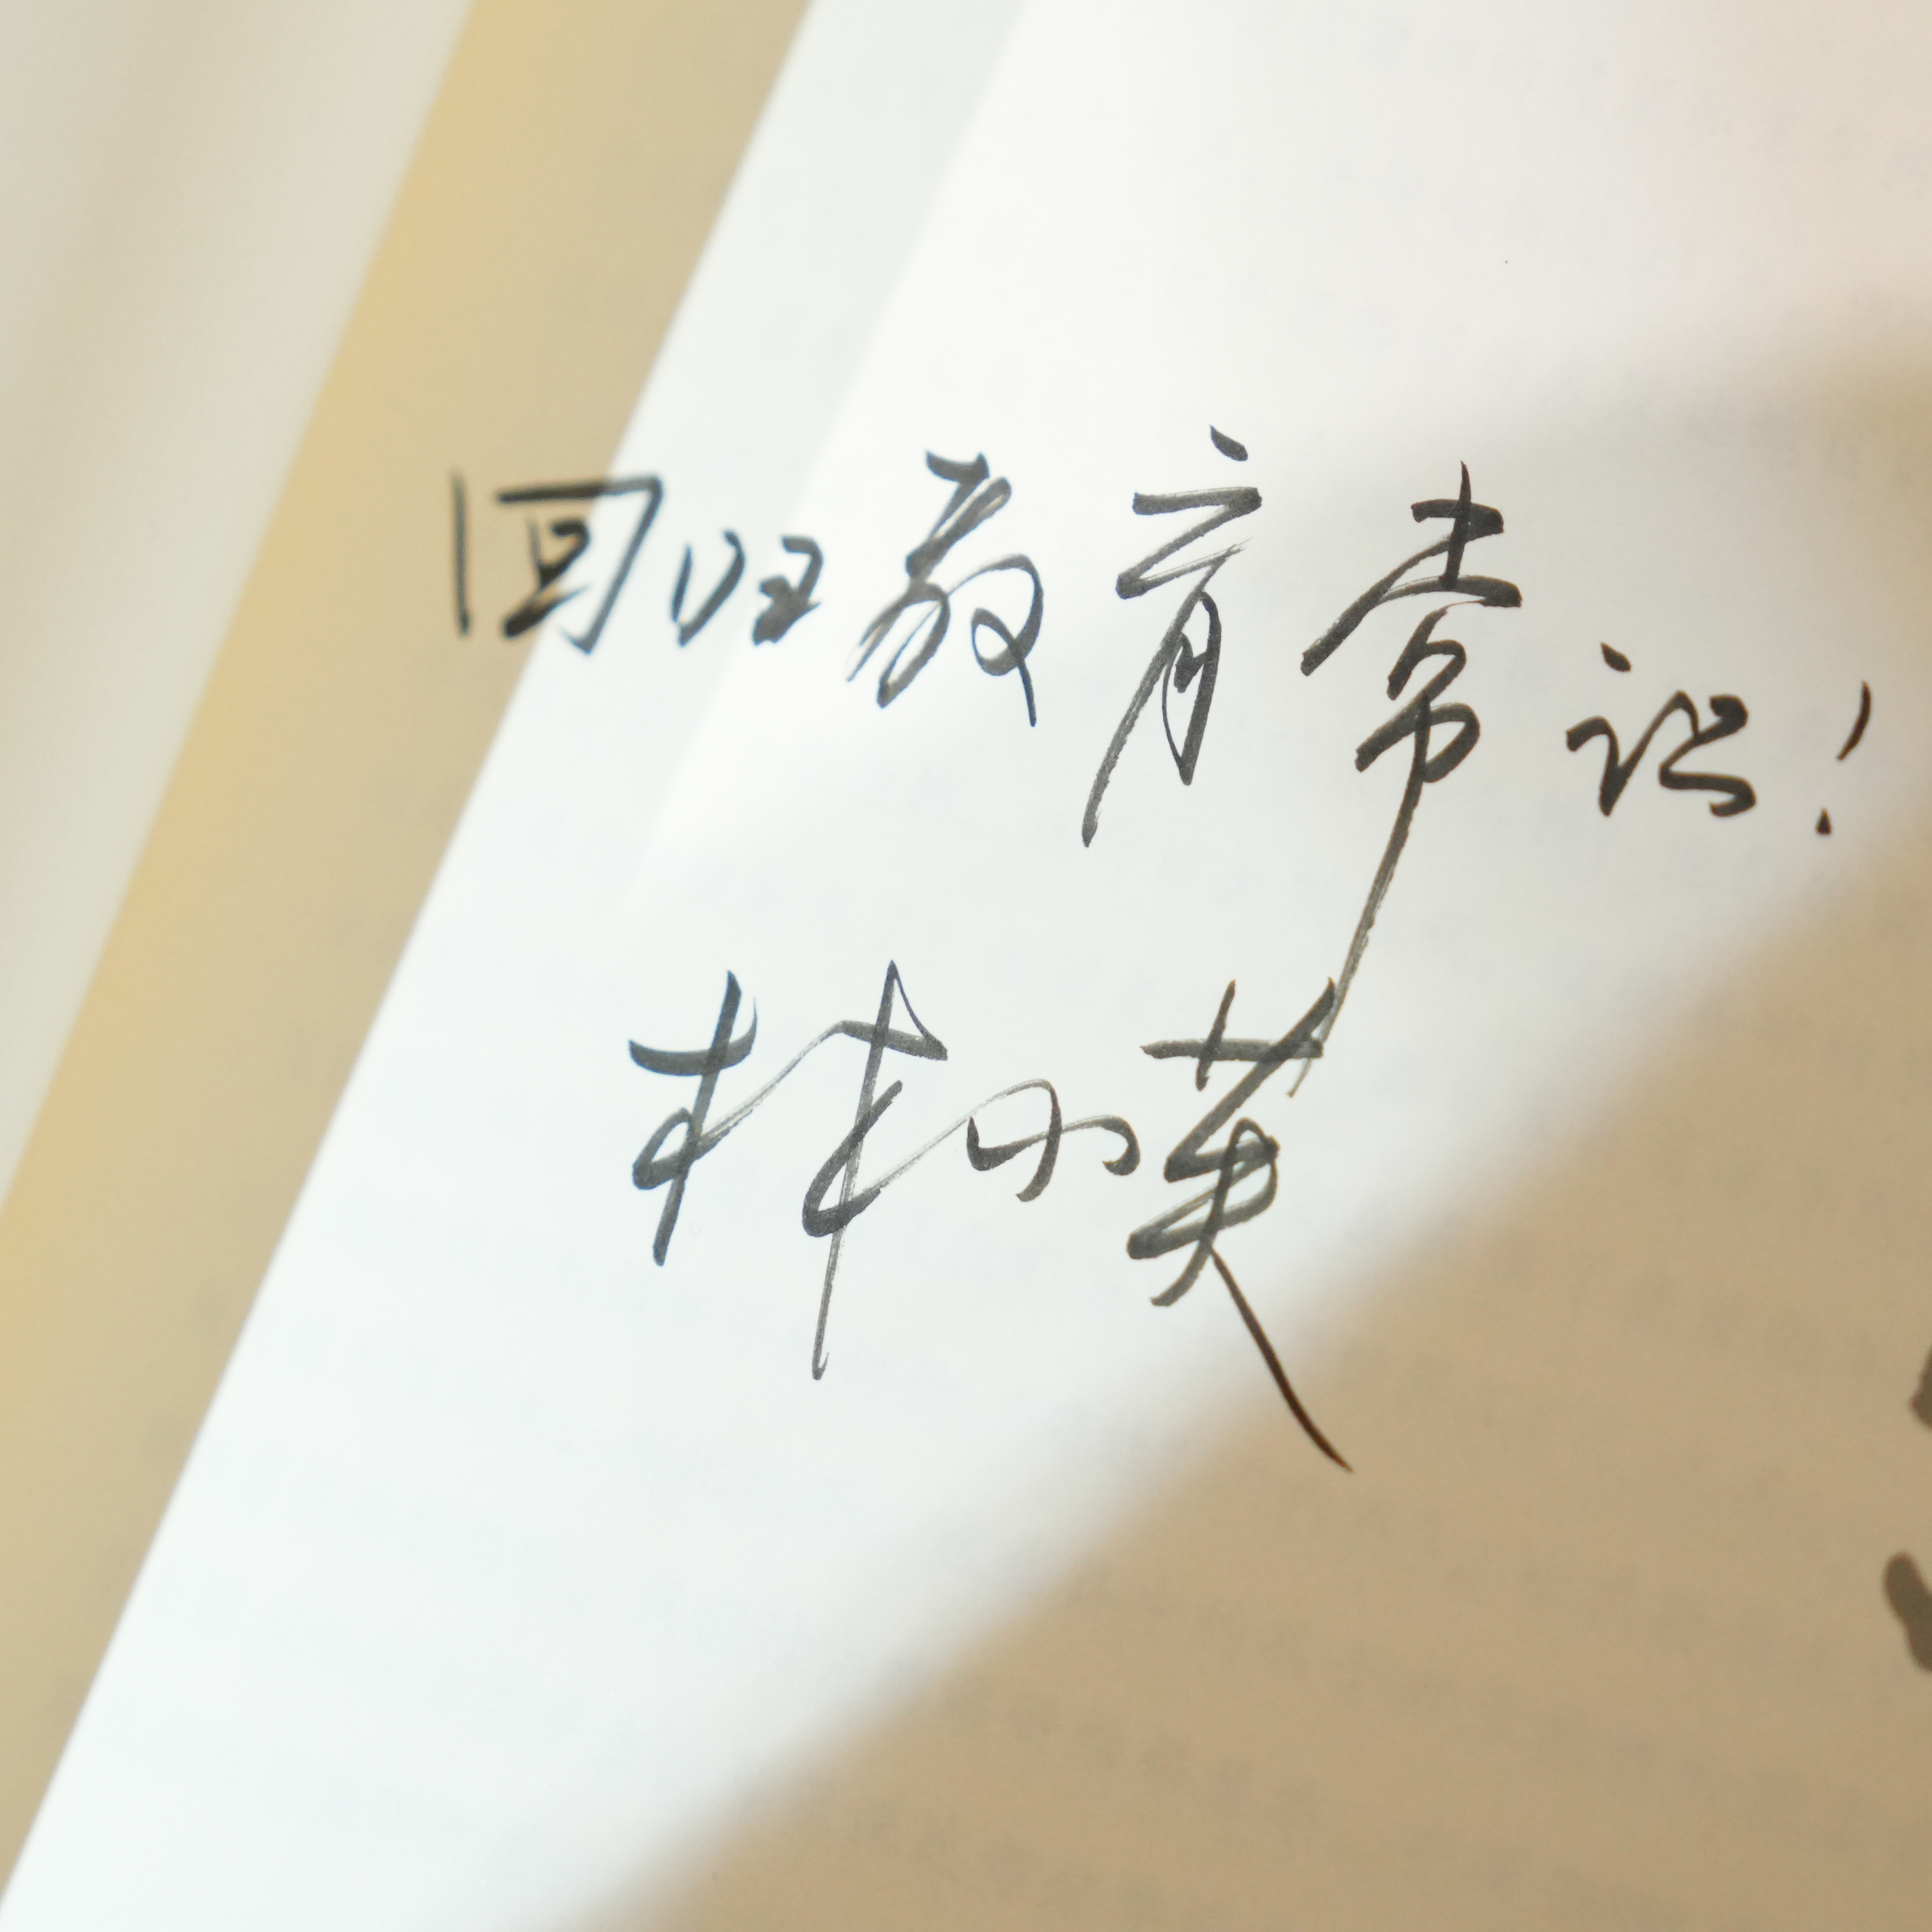 回归教育常识！
林小英